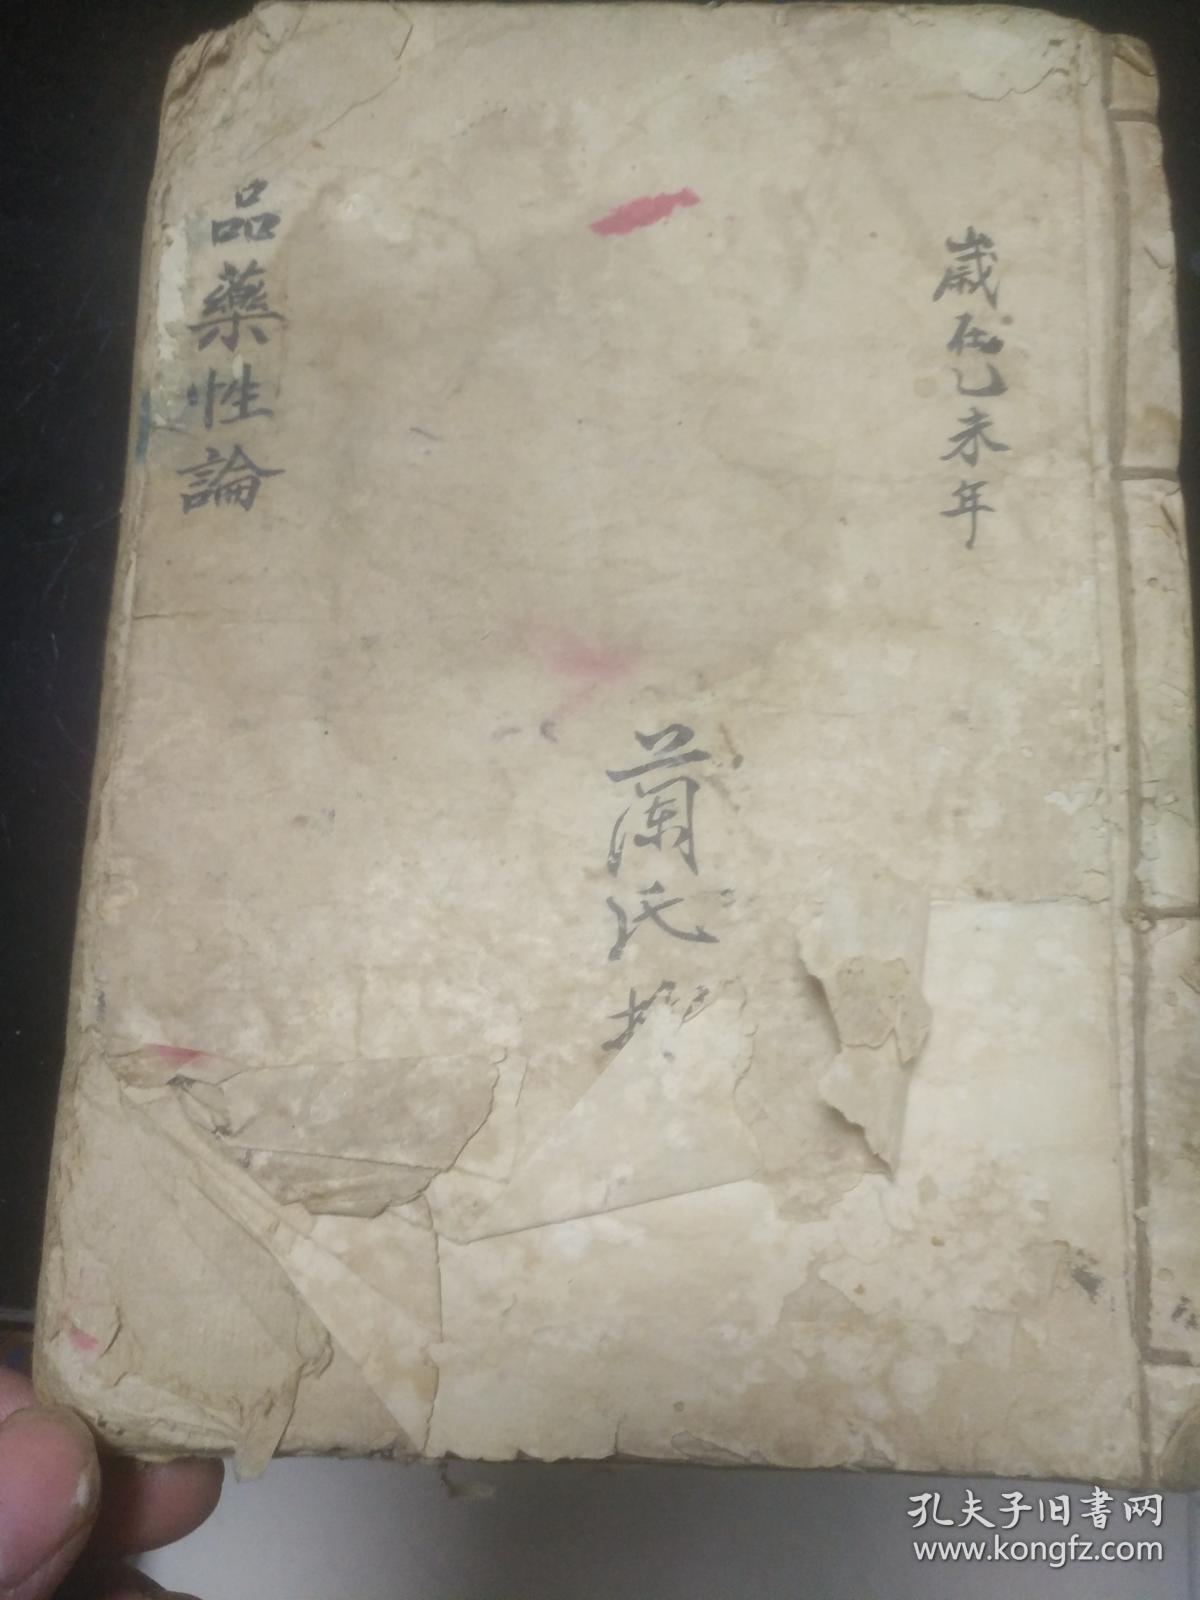 歲在乙未年
蘭氏
品藥性論
孔夫子旧书网
www.kongfz.com